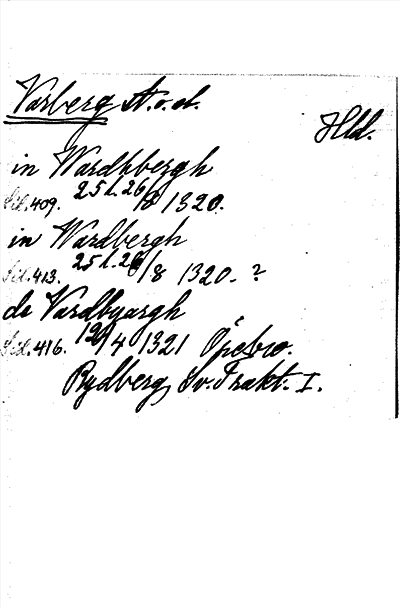 Varberg st. o. sl.
Hld.
in Wardhbergh
Sid. 409. 25 l. 26/8 1320.
in Wardbergh
Sid. 413. 25 l. 26/8 1320. ?
de Vardbyargh
Sid. 416. 12/4 1321 Örebro.
Rydberg, Sv. Trakt. I.